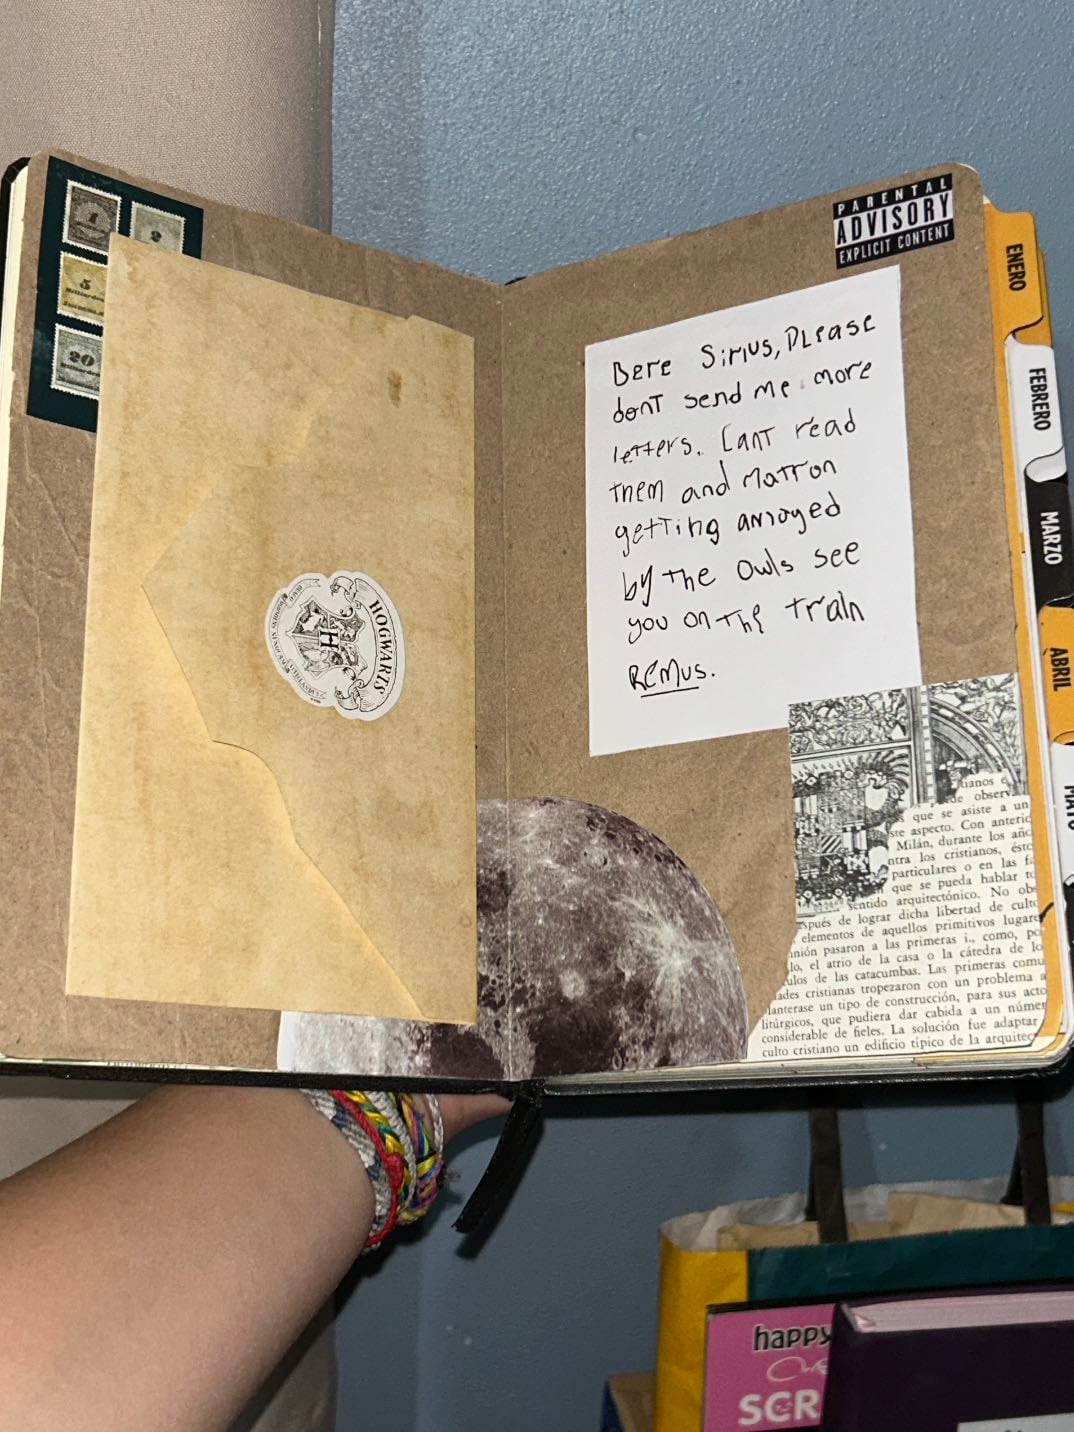 1
2
5
Milliarden
20
Milliarden
HOGWARTS
H
PARENTAL
ADVISORY
EXPLICIT CONTENT
Dere Sirius, PLease
donT send me more
letters. CanT read
Them and Matron
getting annoyed
by the owls see
you on the train
REMUS.
tianos
de observ
que se asiste a un
ste aspecto. Con anterio
Milán, durante los año
ntra los cristianos, ésto
particulares o en las
que se pueda hablar
sentido arquitectónico. No obs
spués de lograr dicha libertad de culto
elementos de aquellos primitivos lugare
nión pasaron a las primeras i., como, po
lo, el atrio de la casa o la cátedra de lo
ulos de las catacumbas. Las primeras comu
dades cristianas tropezaron con un problema a
plantearse un tipo de construcción, para sus acto
litúrgicos, que pudiera dar cabida a un númer
considerable de fieles. La solución fue adaptar
culto cristiano un edificio típico de la arquitec
ENERO
FEBRERO
MARZO
ABRIL
MAYO
happy
SCR